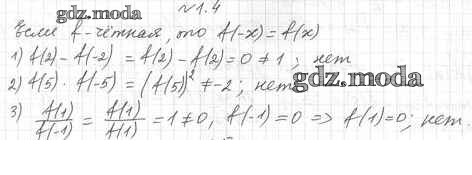 №1.4
gdz.moda
Если f-чётная, то f(-x)=f(x)
1) f(2)-f(-2) = f(2)-f(2)=0≠1; нет
2) f(5)·f(-5)=(f(5))²≠-2; нет
gdz.moda
3) f(1)/f(-1) = f(1)/f(1) =1≠0, f(-1)=0 => f(1)=0; нет.